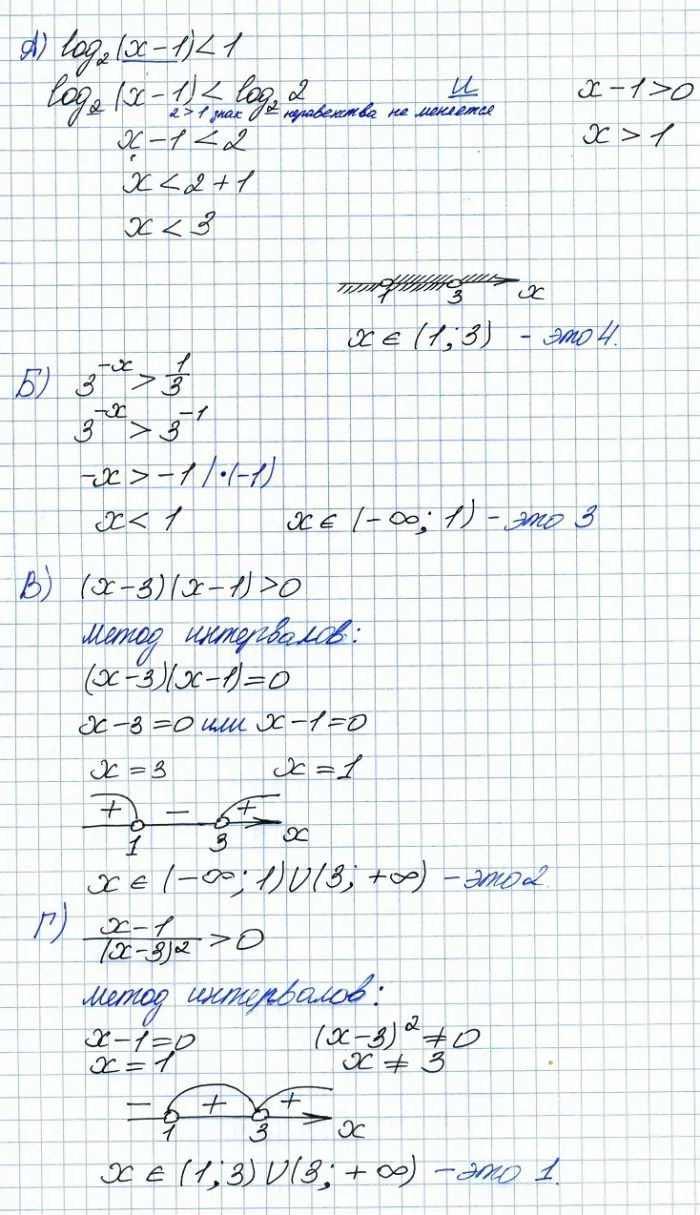 А) log₂(x-1)<1
log₂(x-1)<log₂2 и x-1>0
2>1 знак неравенства не меняется
x-1<2 x>1
x<2+1
x<3
1 3 x
x∈(1;3) - это 4.
Б) 3^(-x)>1/3
3^(-x)>3^(-1)
-x>-1 |·(-1)
x<1 x∈(-∞;1) - это 3
В) (x-3)(x-1)>0
метод интервалов:
(x-3)(x-1)=0
x-3=0 или x-1=0
x=3 x=1
+ - +
1 3 x
x∈(-∞;1)∪(3;+∞) - это 2.
Г) (x-1)/(x-3)²>0
метод интервалов:
x-1=0 (x-3)²≠0
x=1 x≠3
- + +
1 3 x
x∈(1;3)∪(3;+∞) - это 1.